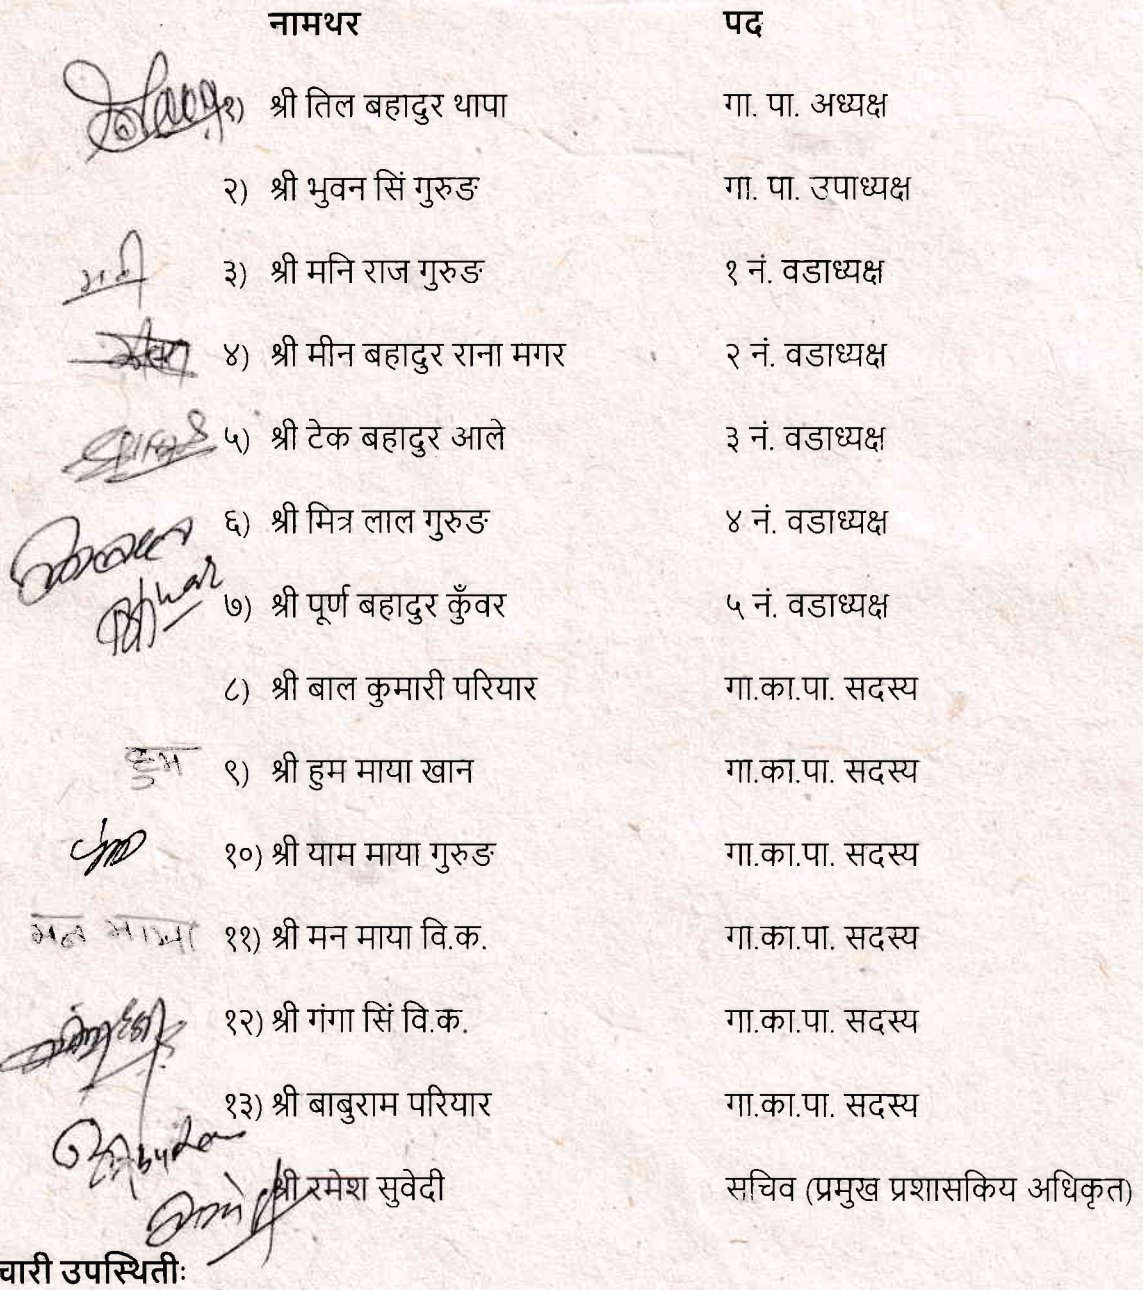 नामथर पद
१) श्री तिल बहादुर थापा गा. पा. अध्यक्ष
२) श्री भुवन सिं गुरुङ गा. पा. उपाध्यक्ष
३) श्री मनि राज गुरुङ १ नं. वडाध्यक्ष
४) श्री मीन बहादुर राना मगर २ नं. वडाध्यक्ष
५) श्री टेक बहादुर आले ३ नं. वडाध्यक्ष
६) श्री मित्र लाल गुरुङ ४ नं. वडाध्यक्ष
७) श्री पूर्ण बहादुर कुँवर ५ नं. वडाध्यक्ष
८) श्री बाल कुमारी परियार गा.का.पा. सदस्य
हुम ९) श्री हुम माया खान गा.का.पा. सदस्य
१०) श्री याम माया गुरुङ गा.का.पा. सदस्य
मन माया ११) श्री मन माया वि.क. गा.का.पा. सदस्य
१२) श्री गंगा सिं वि.क. गा.का.पा. सदस्य
१३) श्री बाबुराम परियार गा.का.पा. सदस्य
श्री रमेश सुवेदी सचिव (प्रमुख प्रशासकिय अधिकृत)
चारी उपस्थितीः